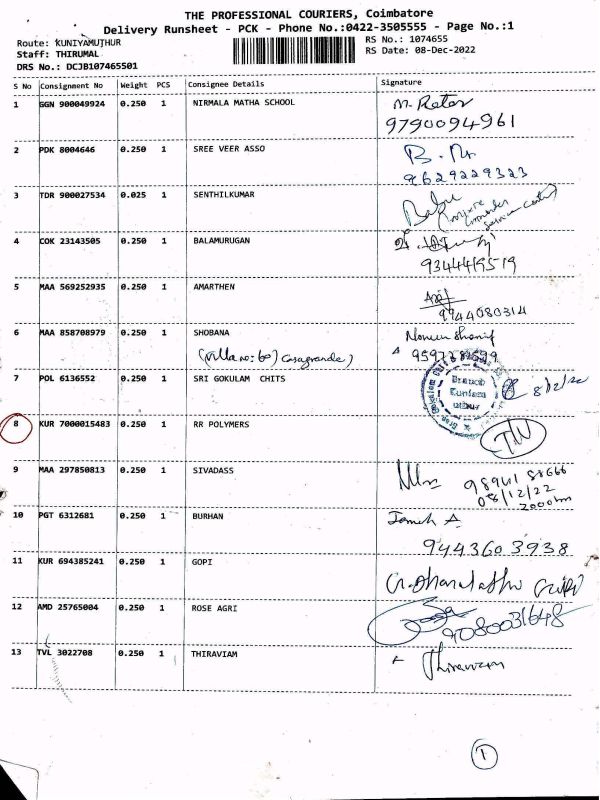 THE PROFESSIONAL COURIERS, Coimbatore
Delivery Runsheet - PCK - Phone No.:0422-3505555 - Page No.:1
Route: KUNIYAMUTHUR
RS No.: 1074655
Staff: THIRUMAL
RS Date: 08-Dec-2022
DRS No.: DCJB107465501
S No Consignment No Weight PCS Consignee Details Signature
1 GGN 900049924 0.250 1 NIRMALA MATHA SCHOOL
9790094961
2 PDK 8004646 0.250 1 SREE VEER ASSO
9629229323
3 TDR 900027534 0.025 1 SENTHILKUMAR
4 COK 23143505 0.250 1 BALAMURUGAN
9344419519
5 MAA 569252935 0.250 1 AMARTHEN
9944080314
6 MAA 858708979 0.250 1 SHOBANA
(Villa no: 60) Casagrande)
7 POL 6136552 0.250 1 SRI GOKULAM CHITS
Branch
8/12/22
8 KUR 7000015483 0.250 1 RR POLYMERS
9 MAA 297850813 0.250 1 SIVADASS
08/12/22
10 PGT 6312681 0.250 1 BURHAN
9443603938
11 KUR 694385241 0.250 1 GOPI
12 AMD 25765004 0.250 1 ROSE AGRI
9080031648
13 TVL 3022708 0.250 1 THIRAVIAM
Thiraviam
1